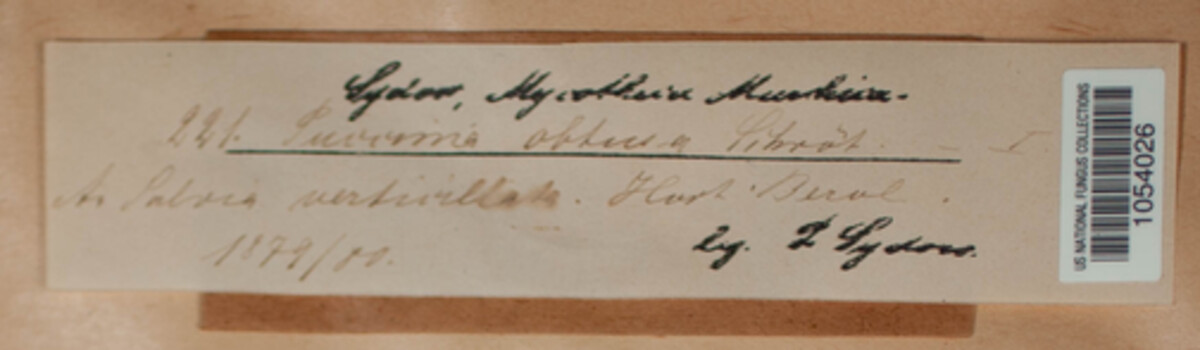 Sydow, Mycotheca Marchica.
221. Puccinia obtusa Schröt. – I
An Salvia verticillata. Hort. Berol.
1879/80.
leg. P. Sydow.
US NATIONAL FUNGUS COLLECTIONS
1054026